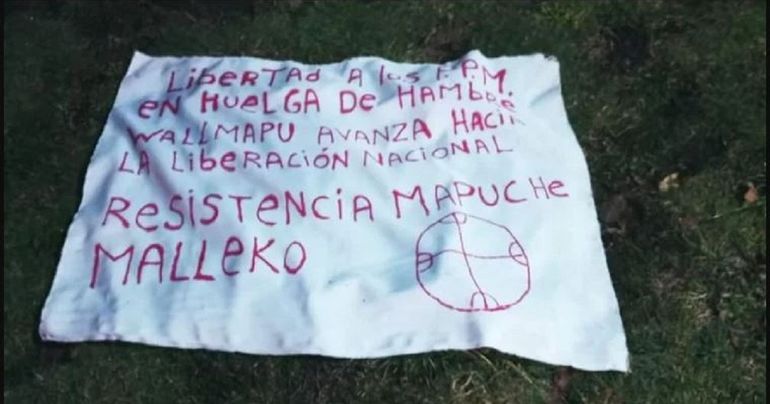 LIBERTAD A LOS P.P.M.
EN HUELGA DE HAMBRE
WALLMAPU AVANZA HACIA
LA LIBERACIÓN NACIONAL
RESISTENCIA MAPUCHE
MALLEKO